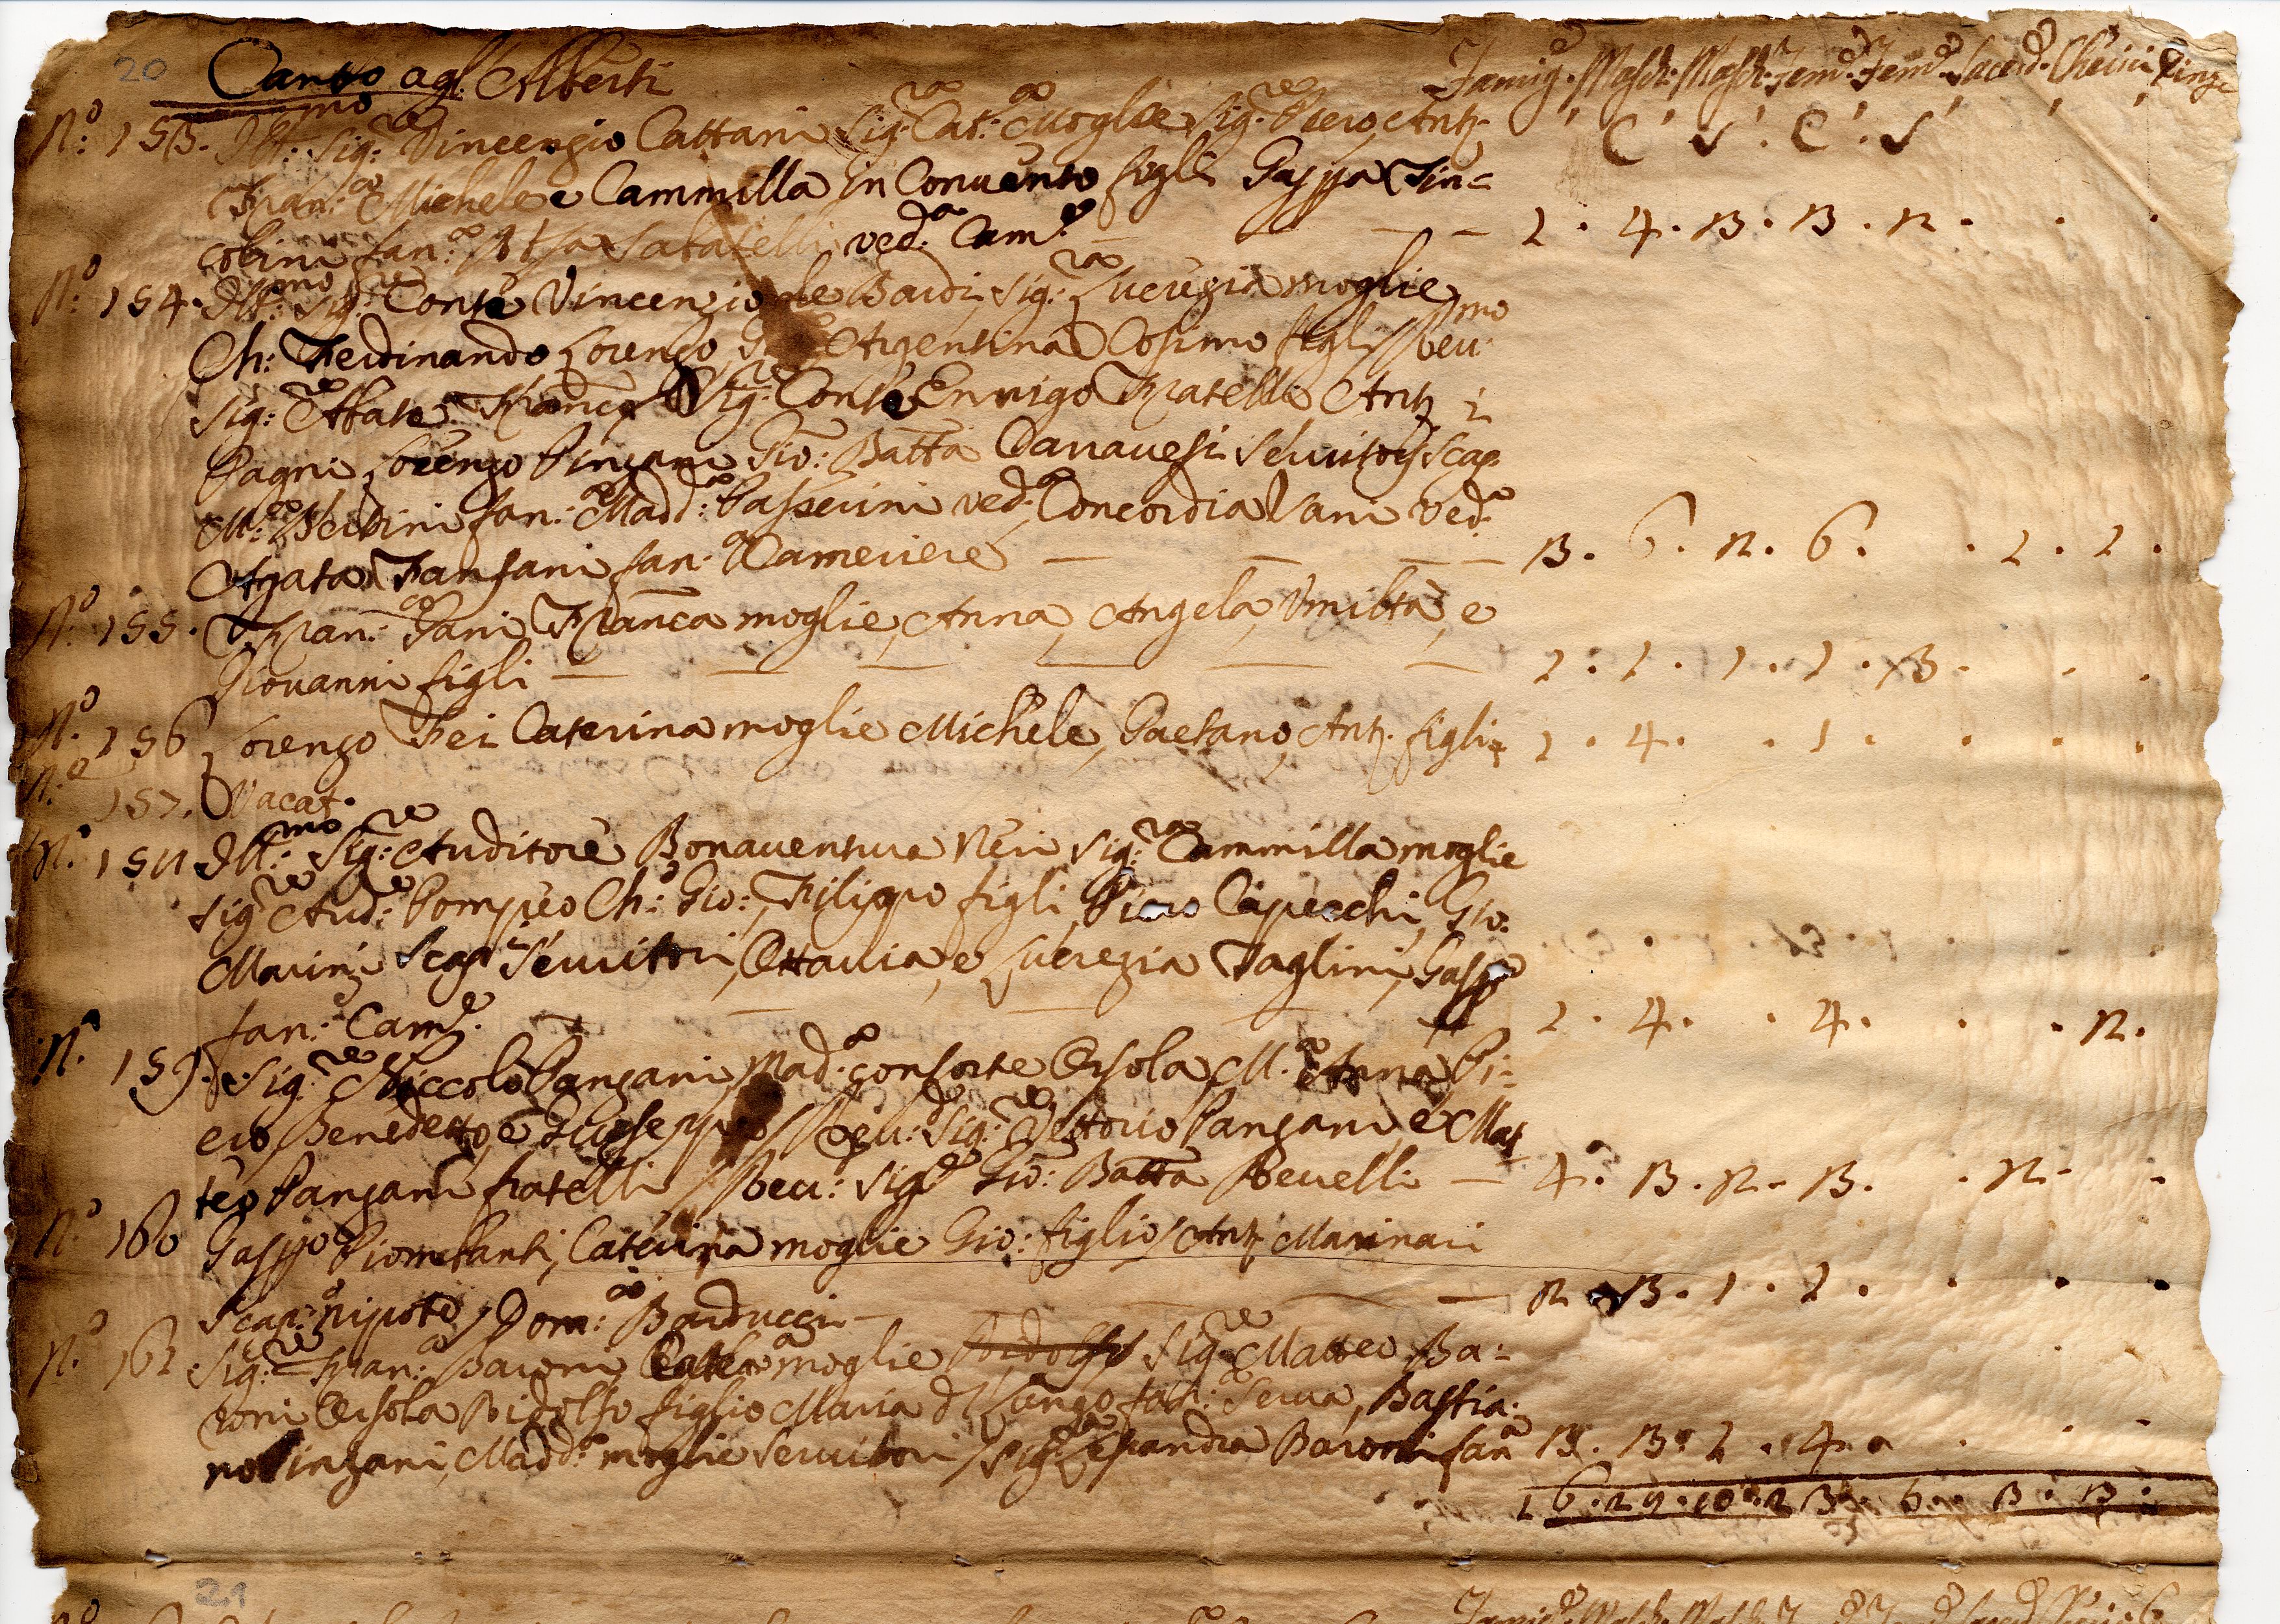 20
Canto agl. Alberti
Famig.e Masch: Masch: Fem.e Fem.e Sacerd. Cherici Pinz
C S. C. S
N.o 153. Ill.mo Sig.re Vincenzio Cattani Sig.ra Cat.a Moglie Sig.re Piero, Ant.
Fran.co Michele e Cammilla in Conuento figli Gaspa
fan. ved.a Cam.e — — 1. 4. 3. 3. 2. . .
N.o 154. Ill.mo Sig.re Conte Vincenzio de Bardi, Sig.ra Lucrezia moglie
Ch: Ferdinando Lorenzo, Argentina Cosimo figli Reu.mo
Sig.re Abate Sig.re Conte Enrigo Fratelli Ant.
Pagni, Lorenzo Pinzani Gio: Batta Canauesi Seruitori Scap.
M.a fan. Madd.a Passerini ved.a Concordia Vani ved.a
Agata Fansani fan. Cameriere — — — 3. 6. 2. 6. . 1. 1.
N.o 155. Fran.co Fani, Fran.ca moglie, Anna, Angela, Vmilta, e
Giouanni figli — — — — — 1. 1. 1. 1. 3. . .
N.o 156 Lorenzo Fei Caterina moglie Michele, Gaetano, Ant. figli 1. 4. . 1. . . .
N.o 157. Vacat.
N.o 158 Ill.mo Sig.re Auditore Bonauentura Neri Sig.ra Cammilla moglie
Sig.re Aud.re Pompeo Ch: Gio:, Filippo figli, Piero Capecchi, Gio.
Marini Scap.i Seruitori, Ottauia, e Lucrezia Taglini,
fan. Cam.e — — — — 1. 4. . 4. . . 2.
N.o 159. Sig.re Niccolo Panzani, Mad.a consorte Orsola, M.a Anna Pi=
ero, Benedetto, e Giuseppe / Reu: Sig.re Vettorio Panzani, e Mat
teo Panzani fratelli / Reu: Sig.re Gio: Batta Reuelli — 4. 3. 2. 3. . 2. .
N.o 160 Caterina moglie Gio: figlio / Ant. Marinari
Scap.o nipote / Dom.co Barducci — — 2. 3. 1. 1. . . .
N.o 161 Sig.re Fran.co Baroni, Cater.a moglie Ridolfo Sig.re Matteo Ba=
roni Orsola Ridolfo figlio Maria del Lungo fan. Serua, Bastia.
no Pinzani, Madd.a moglie Seruitori / Sig.ra Baroni fan. 3. 3. 1. 4. . . .
16. 29. 10. 23. 5. 3. 3.
21